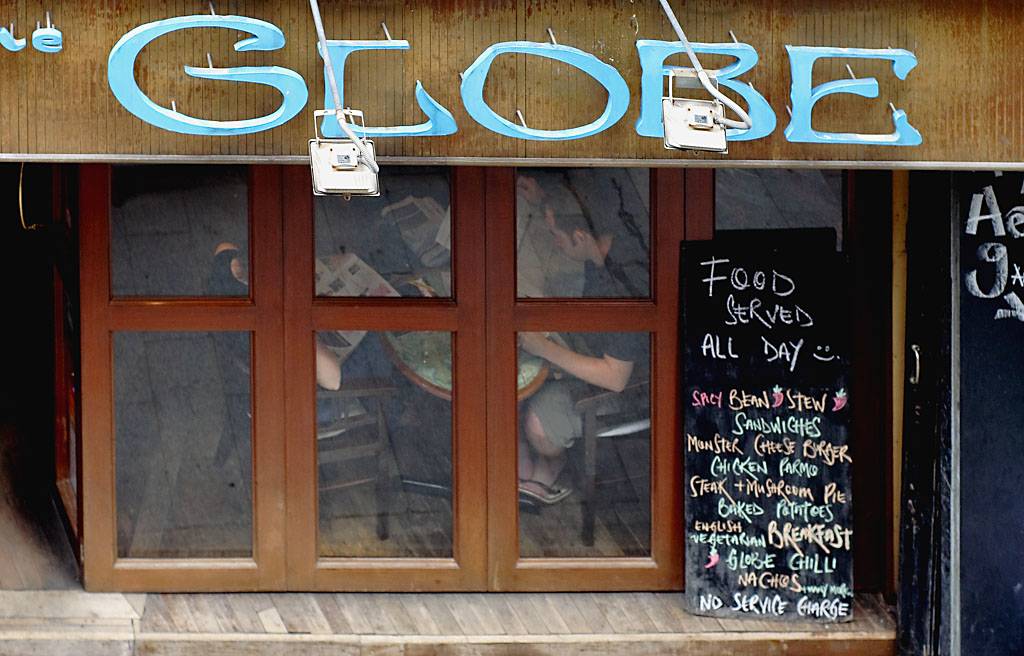 GLOBE
FOOD
SERVED
ALL DAY
SPICY BEAN STEW
SANDWICHES
MONSTER CHEESE BURGER
CHICKEN PARMO
STEAK + MUSHROOM PIE
BAKED POTATOES
ENGLISH
VEGETARIAN BREAKFAST
GLOBE CHILLI
NACHOS + MANY MORE
NO SERVICE CHARGE